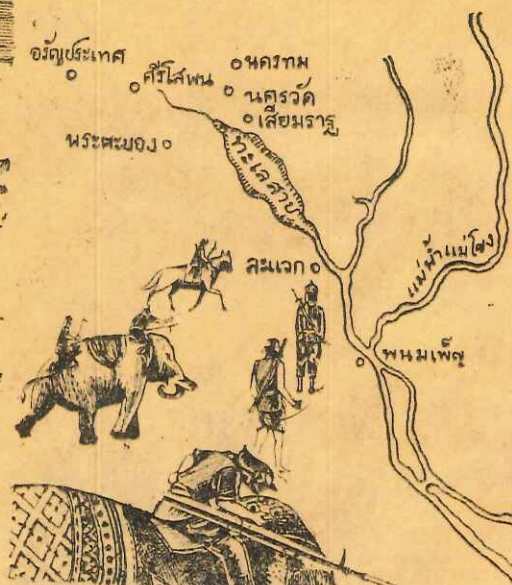 อรัญประเทศ
ศรีโสพน
นครทม
นครวัด
เสียมราฐ
พระตะบอง
ทะเลสาป
ละแวก
แม่น้ำแม่โขง
พนมเพ็ญ